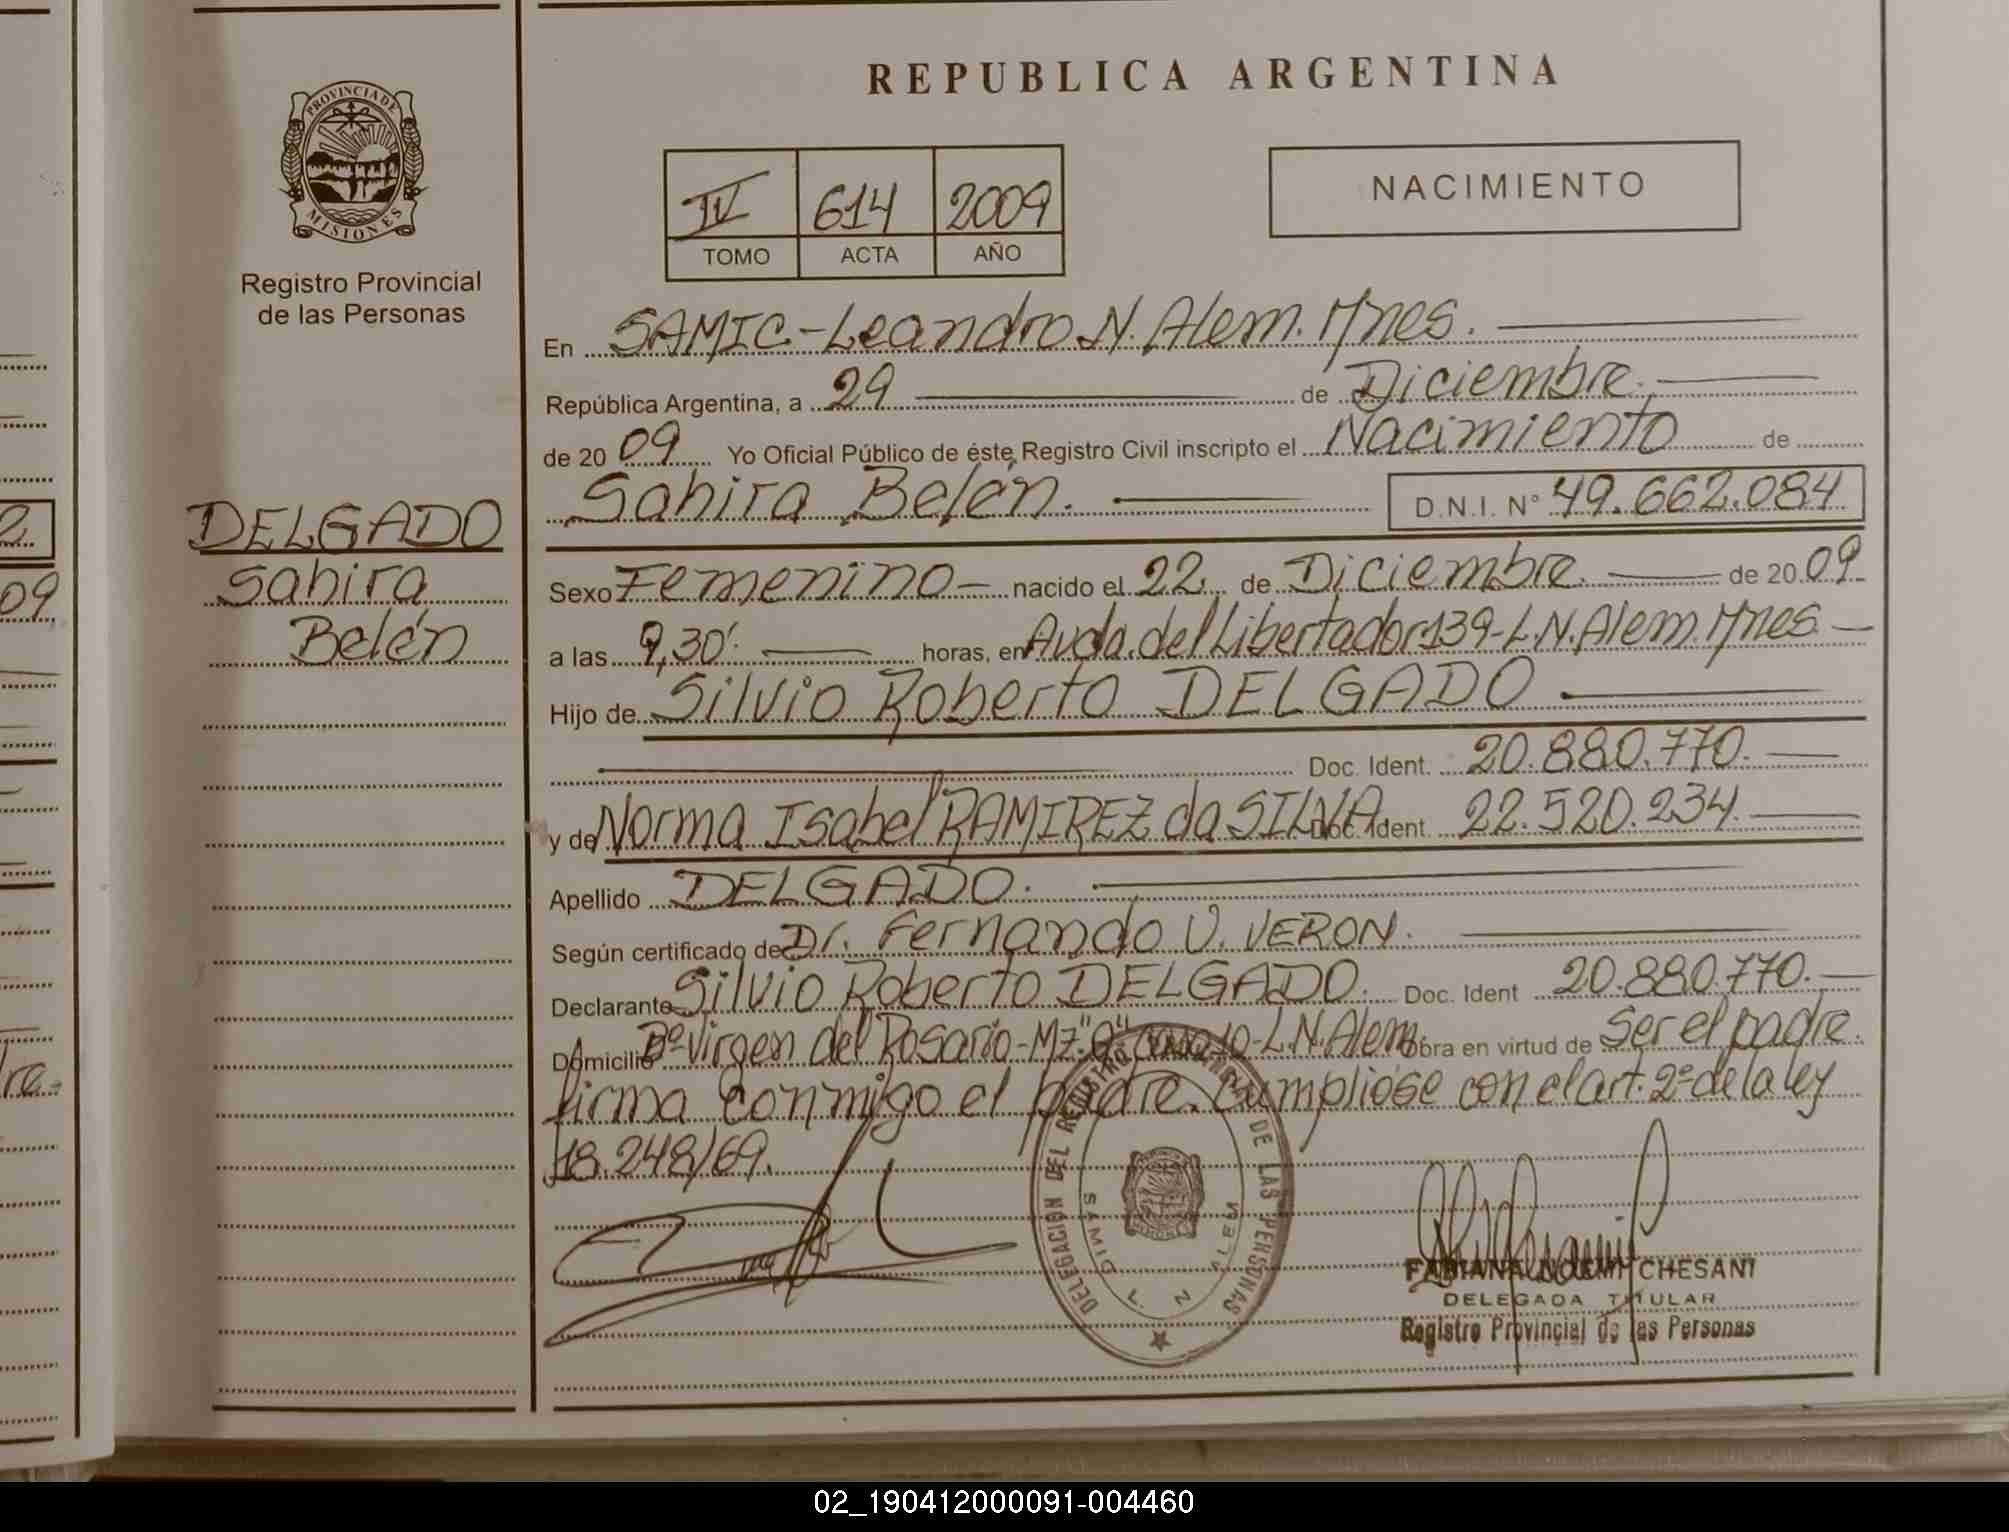 REPUBLICA ARGENTINA
PROVINCIA DE
MISIONES
Registro Provincial
de las Personas
IV 614 2009
TOMO ACTA AÑO
NACIMIENTO
En SAMIC-Leandro N. Alem. Mnes.
República Argentina, a 29 de Diciembre.
de 2009 Yo Oficial Público de éste Registro Civil inscripto el Nacimiento de
Sahira Belén. D.N.I. N° 49.662.084
DELGADO
Sahira
Belén
Sexo Femenino nacido el 22 de Diciembre. de 2009
a las 9,30'. horas, en Avda. del Libertador 139-L.N. Alem. Mnes
Hijo de Silvio Roberto DELGADO
Doc. Ident. 20.880.770.
y de Norma Isabel RAMIREZ da SILVA Doc. Ident. 22.520.234.
Apellido DELGADO.
Según certificado de Dr. Fernando V. VERON.
Declarante Silvio Roberto DELGADO. Doc. Ident 20.880.770.
Domicilio B° Virgen del Rosario-Mz. L.N. Alem. Obra en virtud de Ser el padre.
firma conmigo el padre. Cumplióse con el art. 2° de la ley
18.248/69.
DELEGACION DEL REGISTRO DE LAS PERSONAS
SAMIC L. N. ALEM
FABIANA NOEMI CHESANI
DELEGADA TITULAR
Registro Provincial de las Personas
2.
09
re.
02_190412000091-004460